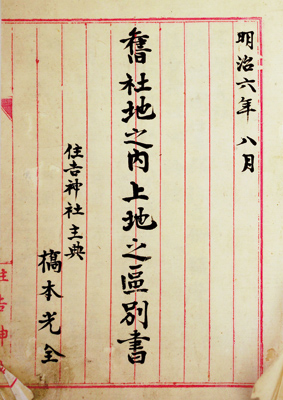 明治六年 八月
舊社地之內上地之區別書
住吉神社主典
槁本光全
住吉神